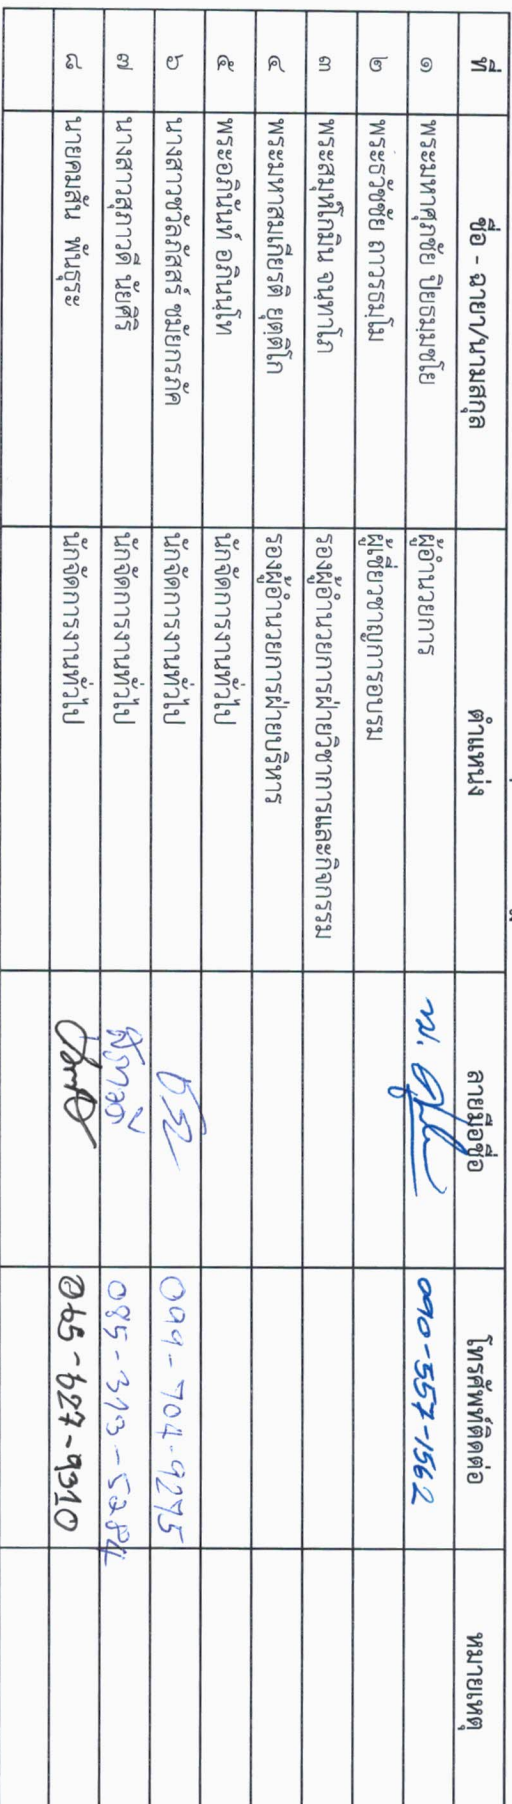 ที่ ชื่อ - ฉายา/นามสกุล ตำแหน่ง ลายมือชื่อ โทรศัพท์ติดต่อ หมายเหตุ
๑ พระมหาศุภชัย ปิยธมฺมชโย ผู้อำนวยการ 090-557-1562
๒ พระธวัชชัย ถาวรธมฺโม ผู้เชี่ยวชาญการอบรม
๓ พระสมุห์โกมิน จนฺทาโภ รองผู้อำนวยการฝ่ายวิชาการและกิจกรรม
๔ พระมหาสมเกียรติ ยุตฺติโก รองผู้อำนวยการฝ่ายบริหาร
๕ พระอภินันท์ อภินนฺโท นักจัดการงานทั่วไป
๖ นางสาวชวัลภัสสร์ ชมัยกรภัค นักจัดการงานทั่วไป
๗ นางสาวสุภาวดี นัยศิริ นักจัดการงานทั่วไป สุภาวดี
๘ นายคมสัน พันธุระ นักจัดการงานทั่วไป